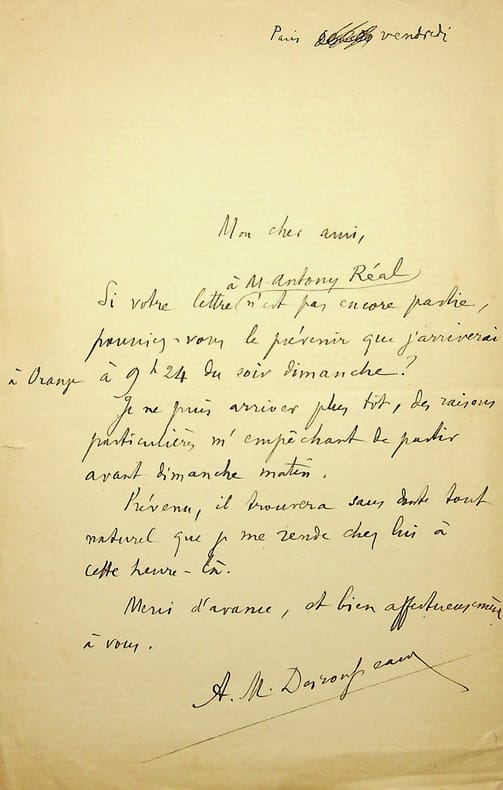 Paris vendredi
Mon cher ami,
à M. Antony Réal
Si votre lettre n'est pas encore partie,
pourriez-vous le prévenir que j'arriverai
à Orange à 9h 24 du soir dimanche?
Je ne puis arriver plus tôt, des raisons
particulières m'empêchant de partir
avant dimanche matin.
Prévenu, il trouvera sans doute tout
naturel que je me rende chez lui à
cette heure-là.
Merci d'avance, et bien affectueusement
à vous.
A. M. Desrousseaux